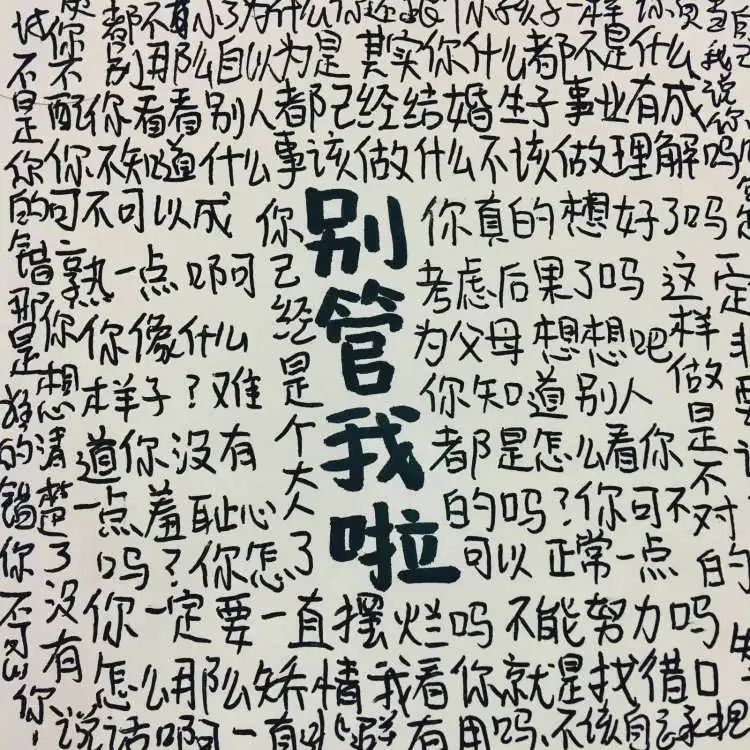 都不
别那么自以为是 其实你什么都不是
不配你看看别人都已经结婚生子事业有成
你不知道什么事该做什么不该做理解吗
可不可以成
熟一点啊
你像什么
样子？难
道你没有
一点羞耻心
吗？你怎么了
你已经是个大人
别管我啦
你真的想好了吗
考虑后果了吗
为父母想想吧
你知道别人
都是怎么看你
的吗？你可不
可以正常一点
这样做是不对的
不是你的错那是谁的错
你想清楚了没有
你一定要一直摆烂吗不能努力吗
怎么那么矫情我看你就是找借口
说话啊
有用吗